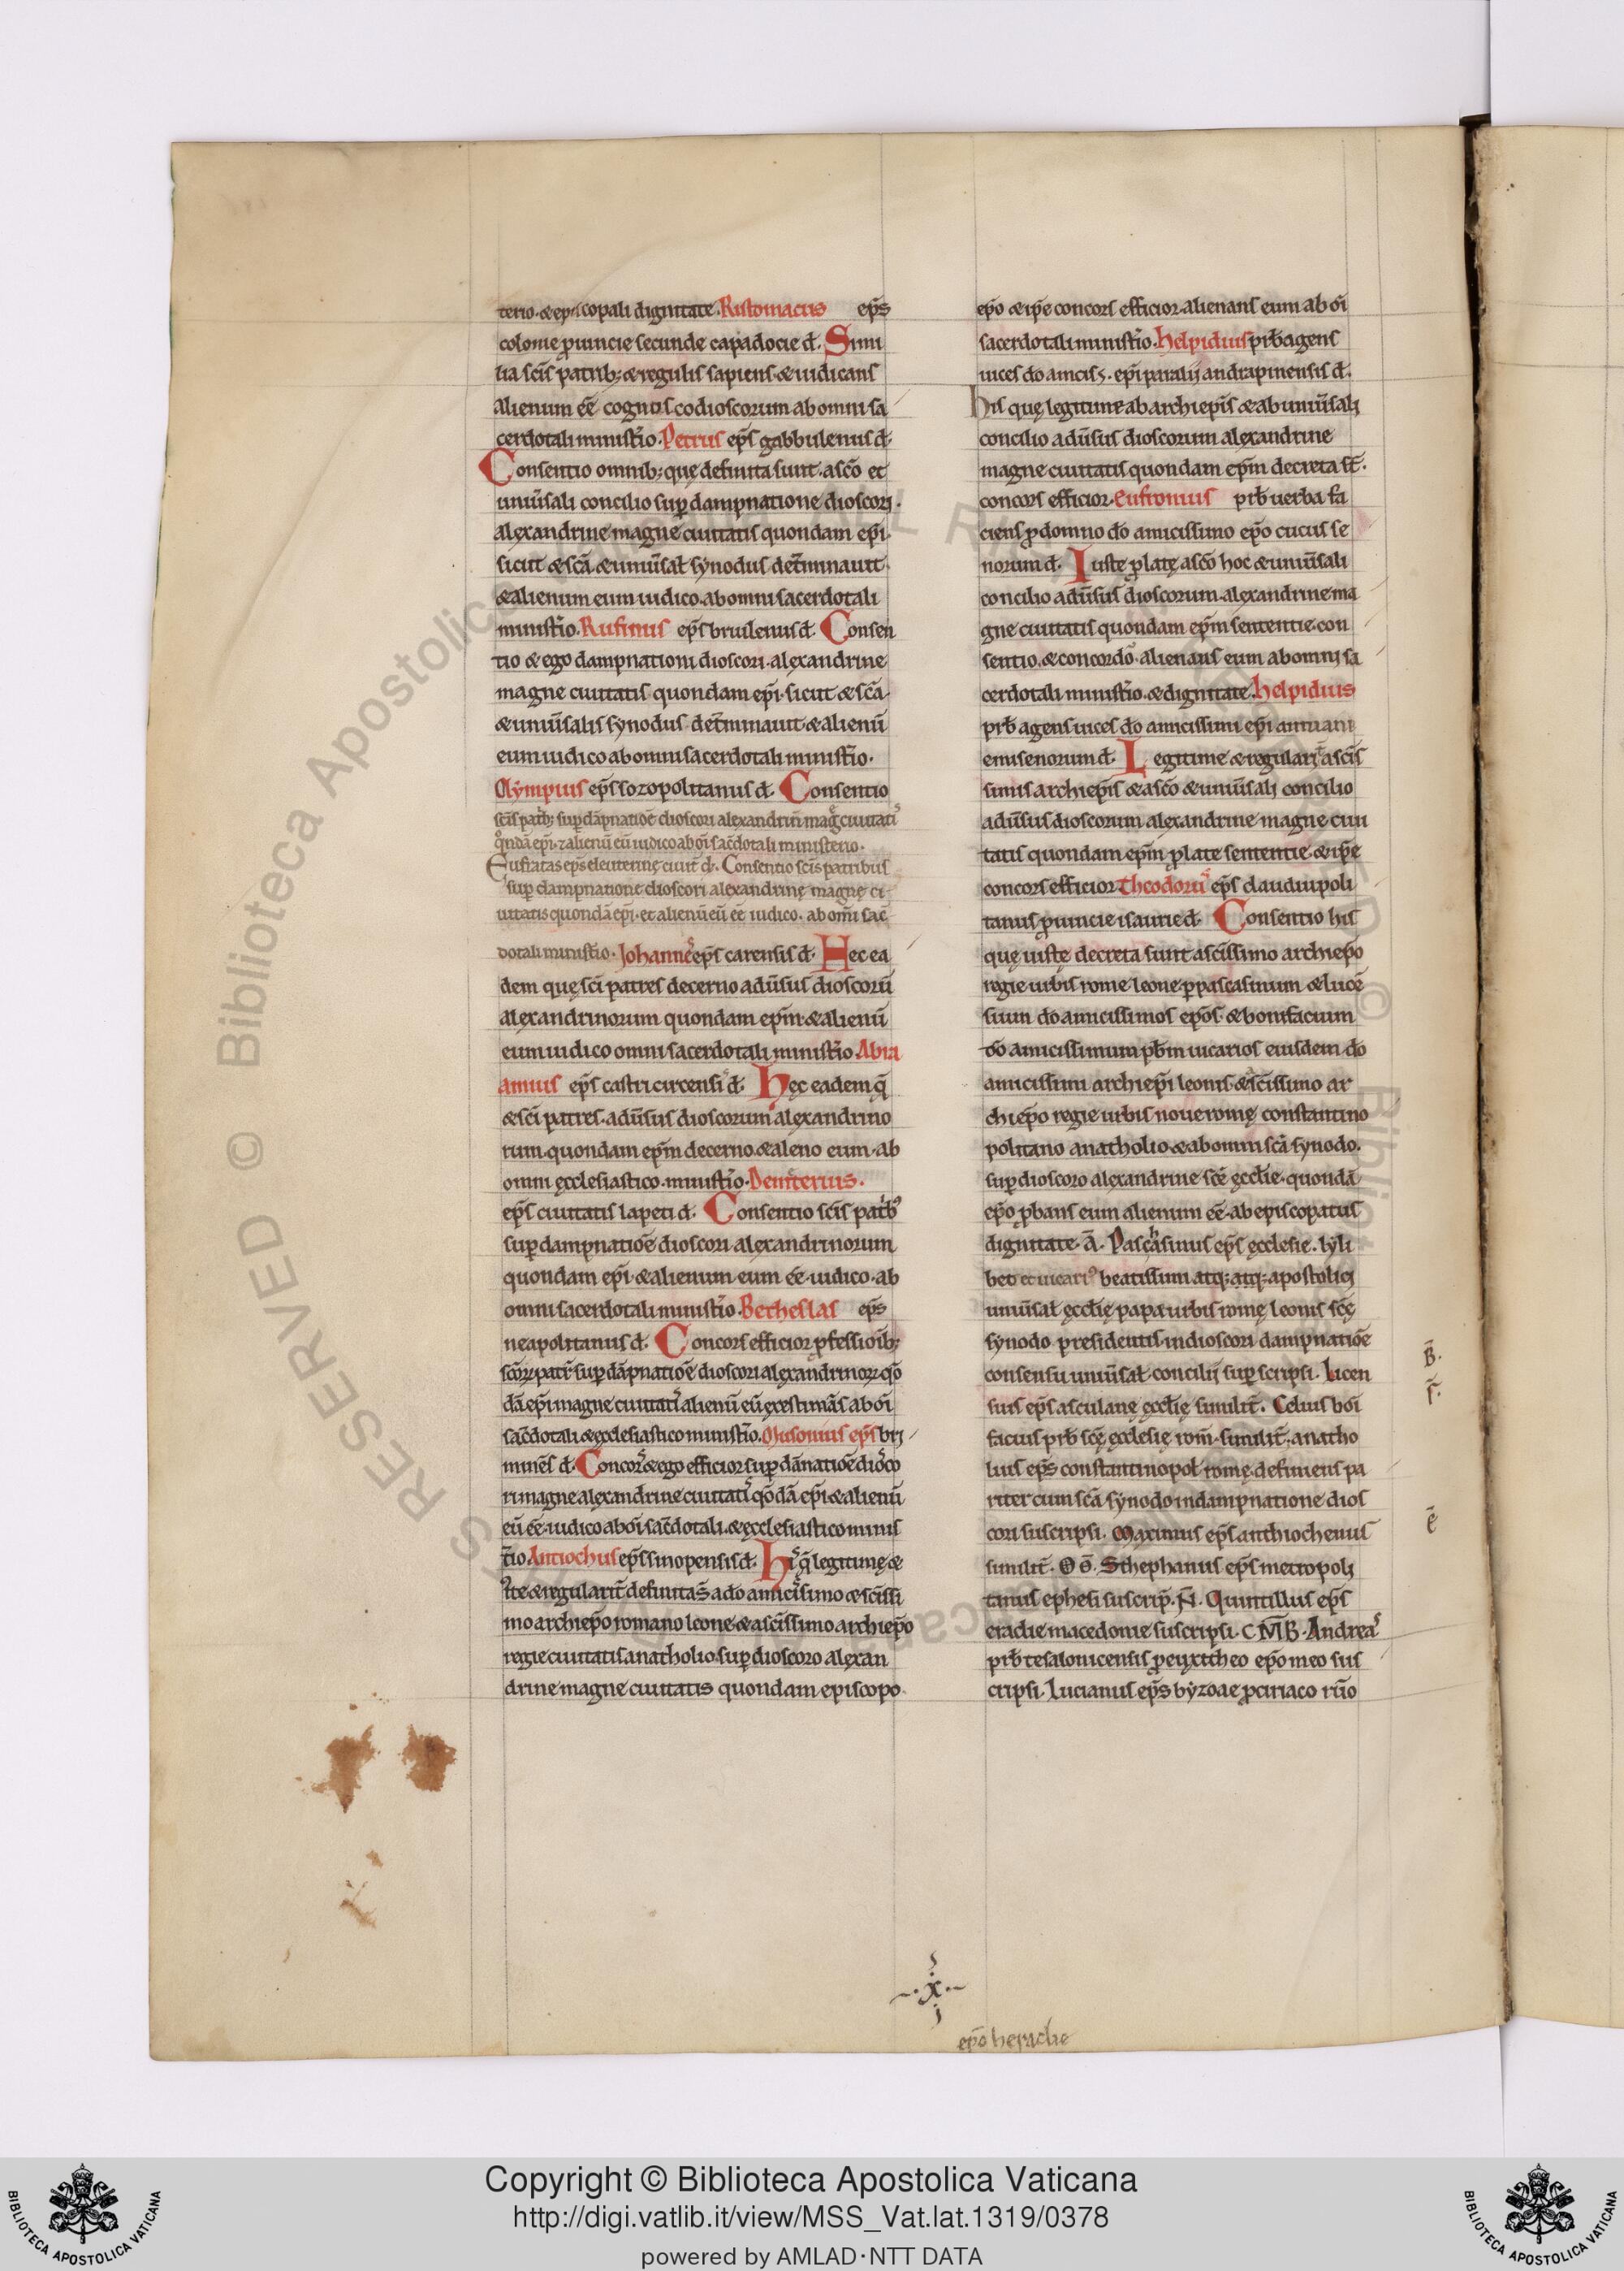 terio. & episcopali dignitate. Ristomacus ep̄s
colonie ꝓuincie secunde capadocie đ. Simi
lia sc̄is patrib; & regulis sapiens & iudicans
alienum eē̄ cognitis codioscorum ab omni sa
cerdotali minist̄io. Petrus ep̄s gabbulenus đ.
Consentio omnib; quę definita sunt. a sc̄o et
uniūsali concilio suꝑ dampnatione dioscori.
alexandrine magne ciuitatis quondam ep̄i.
sicut & sc̄a & uniūsał synodus det̄minauit.
& alienum eum iudico. ab omni sacerdotali
minist̄io. Rufinus ep̄s bruilenus đ. Consen
tio & ego dampnationi dioscori. alexandrine
magne ciuitatis quondam ep̄i. sicut & sc̄a
& uniūsalis synodus det̄minauit & alienū
eum iudico ab omni sacerdotali minist̄io.
Olympius ep̄s sozopolitanus đ. Consentio
sc̄is patb; suꝑ dāpnatiōe dioscori alexandrin̄ mag ciuitati
qndā ep̄i. ⁊ alienū eū iudico ab oī sac̄dotali ministerio.
Eustratas ep̄s eleuterinę ciuit̄ đ. Consentio sc̄is patribus
suꝑ dampnatione dioscori alexandrinę magnę ci
uitatis quondā ep̄i. et alienū eū eē iudico. ab om̄i sac̄
dotali minist̄io. Johanne ep̄s carensis đ. Hec ea
dem quę sc̄i patres decerno adūsus dioscorū
alexandrinorum quondam ep̄m. & alienū
eum iudico omni sacerdotali minist̄io. Abra
amius ep̄s castri circensi đ. Hęc eadem q̄
& sc̄i patres. adūsus dioscorum alexandrino
rum quondam ep̄m decerno. & aleno eum ab
omni ęcclesiastico minist̄io. Demeterius.
ep̄s ciuitatis lapeti đ. Consentio sc̄is patrb
suꝑ dampnatiōe dioscori alexandrinorum
quondam ep̄i. & alienum eum eē. iudico. ab
omni sacerdotali minist̄io. Betheslas ep̄s
neapolitanus đ. Concors efficior ꝓfessioīb;
scōꝝ patr̄ suꝑ dāpnatiōe dioscori alexandrinoꝝ. qō
dā ep̄i magne ciuitati alienū eū existimās ab oī
sac̄dotali & ęcclesiastico minist̄io. Musonius ep̄s bri
minēs đ. Concor & ego efficior suꝑ dānatiōe dio co
ri magne alexandrine ciuitati qōdā ep̄i & alienū
eū eē. iudico ab oī sac̄dotali. & ęcclesiastico minis
t̄io. Antiochus ep̄s sinopensis đ. Hi q̄ legitime &
te & regularit̄ definitas̄ a do amicisimo & sc̄issi
mo archiep̄o romano leone & a sc̄issimo archiep̄o
regie ciuitatis anatholio. suꝑ dioscoro alexan
drine magne ciuitatis quondam episcopo
ep̄o & ip̄e concors efficior. alienans eum ab oī
sacerdotali minist̄io. helpidius prb̄ agens
uices do amcis s. ep̄i paralij andrapinensis đ.
His quę legitime ab archiep̄is & ab uniūsali
concilio adūsus dioscorum alexandrine
magne ciuitatis quondam ep̄m decreta st̄.
concors efficior. Eufronius prb̄ uerba fa
ciens ꝓ domno do amicissimo ep̄o cucus se
norum đ. Iuste ꝓlatę a sc̄o hoc & uniūsali
concilio adūsus dioscorum alexandrine ma
gne ciuitatis quondam ep̄m sententie con
sentio. & concordo. alienans eum ab omni sa
cerdotali minist̄io. & dignitate. helpidius
prb̄ agens uices do amicissimi ep̄i antuani
emisenorum đ. Legitime & regulari a sc̄is
simis archiep̄is & a sc̄o & uniūsali concilio
adūsus dioscorum alexandrine magne ciui
tatis quondam ep̄m ꝓlate sententie. & ip̄e
concors efficior. Theodoru ep̄s claudiupoli
tanus ꝓuincie isaurie đ. Consentio his
quę iustę decreta sunt a sc̄issimo archiep̄o
regie urbis rome leone. ꝑ pascasinum & lucē
sium do amicissimos ep̄os. & bonifacium
do amicissimum pb̄m uicarios eiusdem do
amicissimi archiep̄i leonis. & sc̄issimo ar
chiep̄o regie urbis noue romę constantino
politano anatholio & ab omni sc̄a synodo.
suꝑ dioscoro alexandrine sc̄ę ęccłie. quondā
ep̄o ꝓbans eum alienum eē. ab episcopatus
dignitate. ā. Pascasinus ep̄s ęcclesie. lyli
beo et uicari beatissimi atq; atq; apostolici
uniūsał ęccłię papa urbis romę leonis sc̄ę
synodo presidentis in dioscori dampnatiōe
consensu uniūsał concilij suꝑscripsi. Lucen
sius ep̄s asculanę ęccłię similit̄. Celius boī
facius prb̄ sc̄ę ęcclesię rom̄. similit̄. anatho
lius ep̄s constantinopoł romę. definiens pa
riter cum sc̄a synodo in dampnatione dios
cori suscripsi. Maximus ep̄s anthiochenus
similit̄. Θ Θ̄. Sthephanus ep̄s metropoli
tanus ephesi suscrip̄. N̄. Quintillus ep̄s
eradie macedonie suscripsi. C M̄ B̄. Andrea
prb̄ tesalonicensis ꝓ euxitheo ep̄o meo sus
cripsi. Lucianus ep̄s byzoae ꝓ ciriaco rūo
B̄.
r̄.
ē
.x.
ep̄o heraclie
RESERVED © Biblioteca Apostolica
Copyright © Biblioteca Apostolica Vaticana
http://digi.vatlib.it/view/MSS_Vat.lat.1319/0378
powered by AMLAD·NTT DATA
BIBLIOTECA APOSTOLICA VATICANA
BIBLIOTECA APOSTOLICA VATICANA